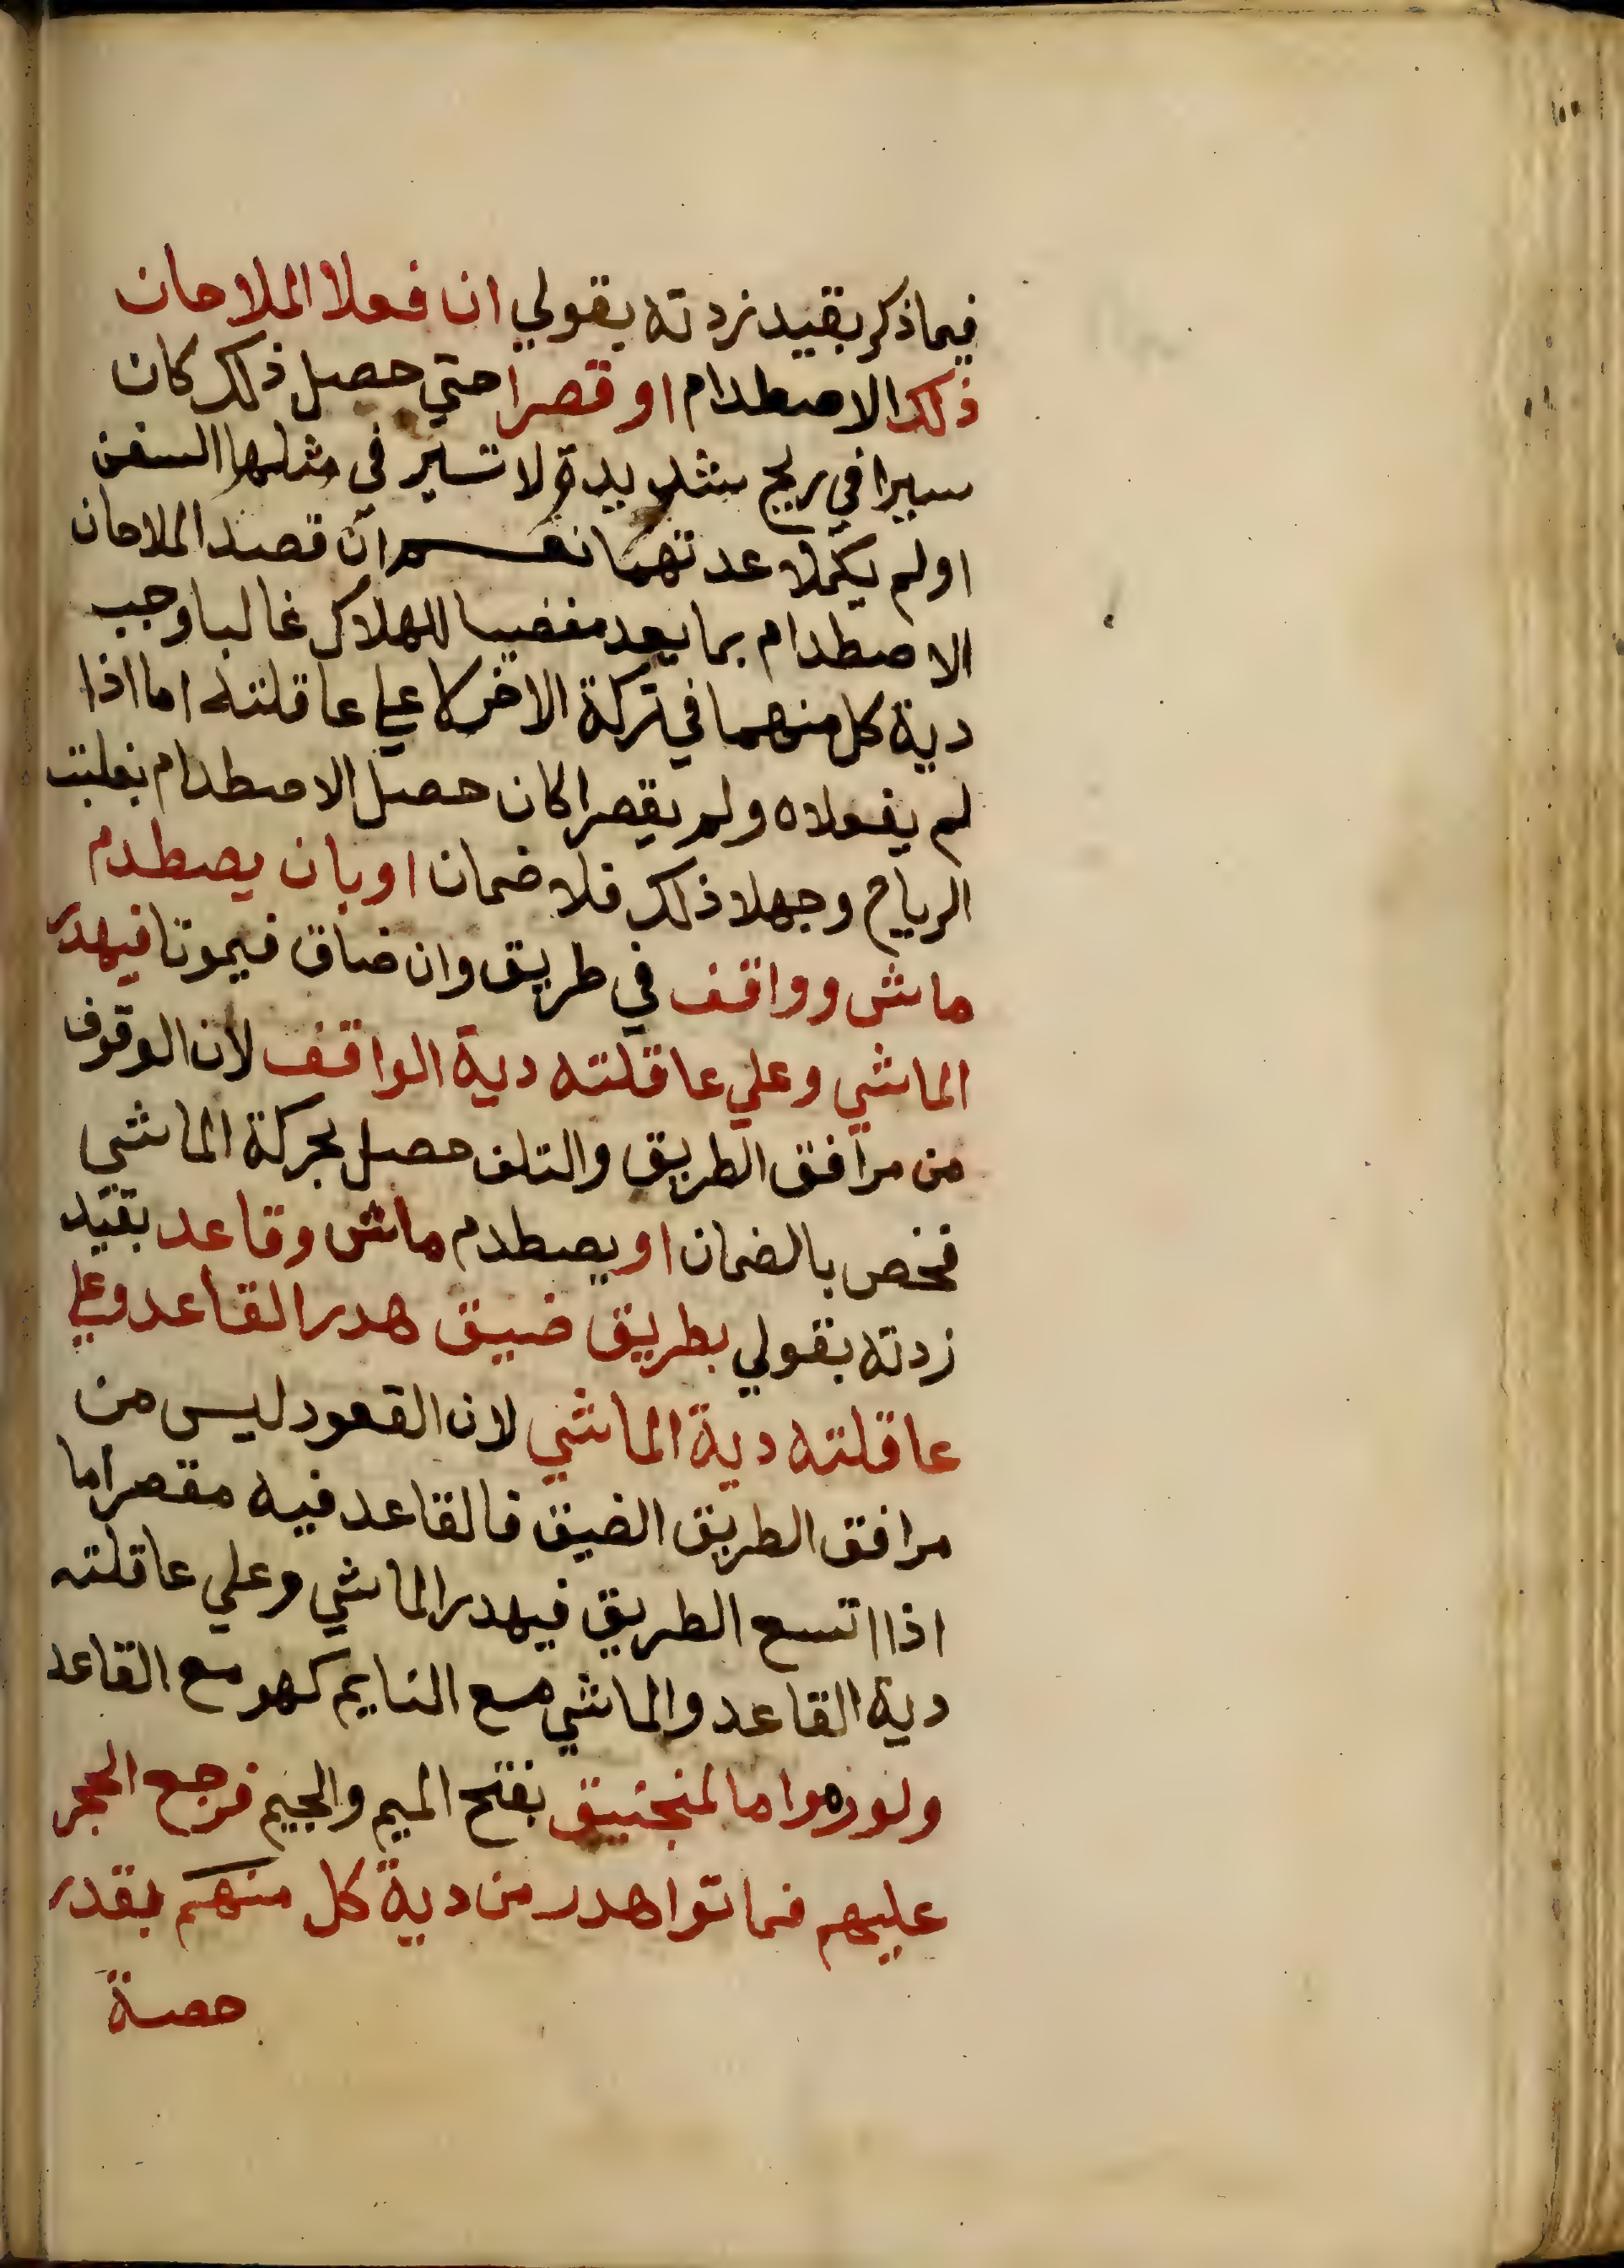 فيما ذكر بقيد زدته بقولي ان فعلا الملاحان
ذلك الاصطدام او قصرا حتي حصل ذلك كان
سيرا في ريح شديدة لا تسير في مثلها السفن
اولم يكملا عدتهما نعم ان قصد الملاحان
الاصطدام بما يعد مفضيا للهلاك غالبا وجب
دية كل منهما في تركة الاخر لا علي عاقلته اما اذا
لم يفعلاه ولم يقصرا كان حصل الاصطدام بغلبة
الرياح وجهلا ذلك فلا ضمان او بان يصطدم
ماش وواقف في طريق وان ضاق فيموتا فيهدر
الماشي وعلي عاقلته دية الواقف لان الوقوف
من مرافق الطريق والتلف حصل بحركة الماشي
فخص بالضمان او يصطدم ماش وقاعد بقيد
زدته بقولي بطريق ضيق هدر القاعد وعلي
عاقلته دية الماشي لان القعود ليس من
مرافق الطريق الضيق فالقاعد فيه مقصر اما
اذا اتسع الطريق فيهدر الماشي وعلي عاقلته
دية القاعد والماشي مع النايم كهو مع القاعد
ولو رموا بالمنجنيق بفتح الميم والجيم فرجع الحجر
عليهم فماتوا هدر من دية كل منهم بقدر
حصة